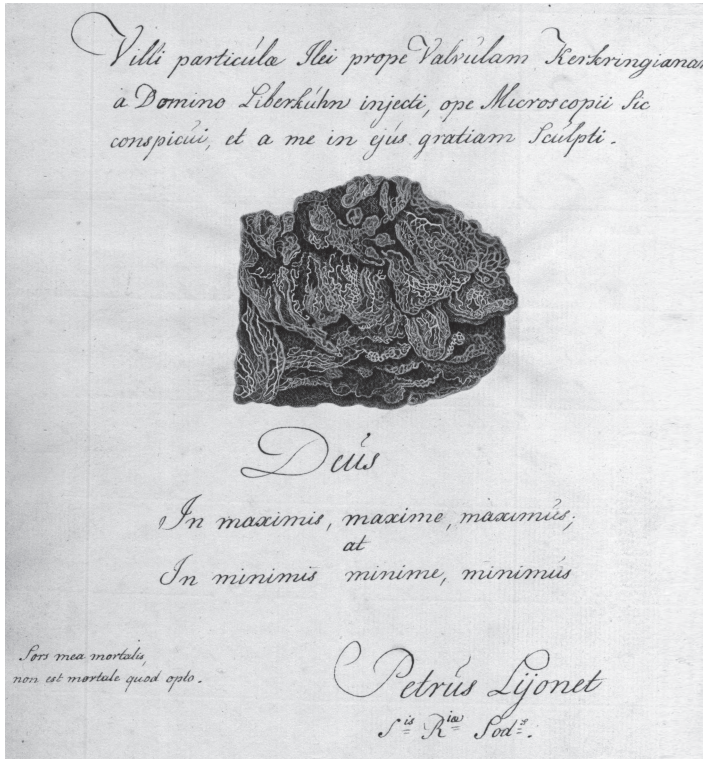 Villi particúlæ Ilei prope Valvúlam Kerkringianam
a Domino Liberkúhn injecti, ope Microscopii sic
conspicúi, et a me in ejús gratiam Scúlpti.
Deús
In maximis, maxime, maximús;
at
In minimis minime, minimús
Sors mea mortalis,
non est mortale quod opto.
Petrús Lijonet
S^is R^iæ Sod^s.